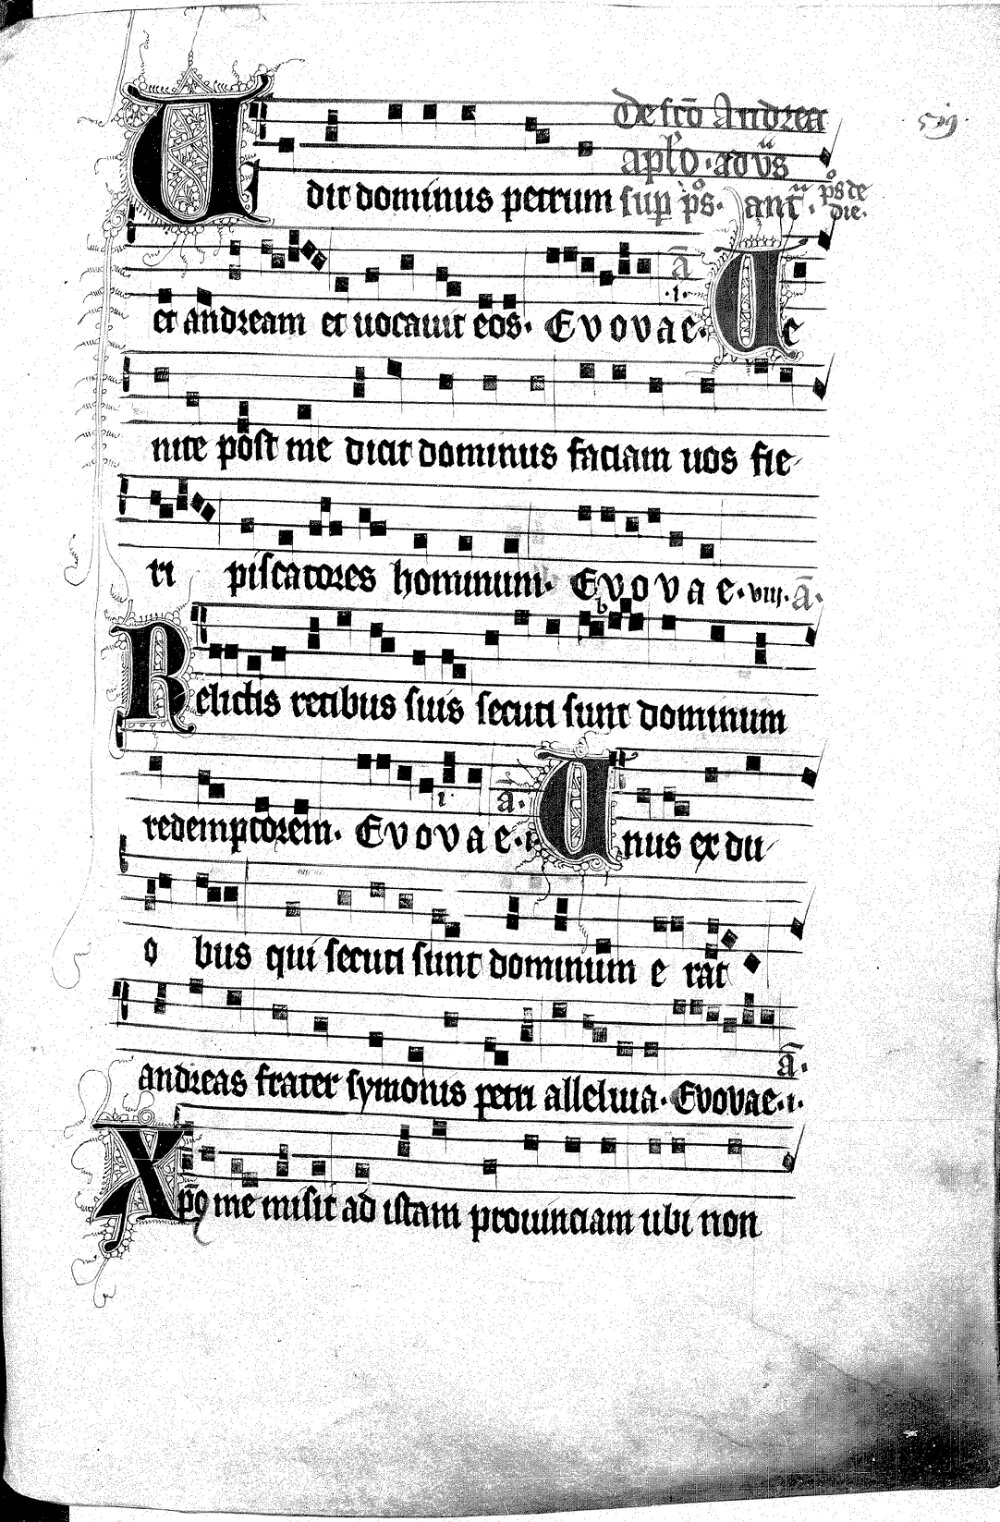 De scō Andrea
519.
aplo · ad vs̄
Vidit dominus petrum sup ps̄. ant̄. ps̄ de die.
et andream et uocauit eos. Evovae. ā .i. Ve
nite post me dicit dominus faciam uos fie
ri piscatores hominum. Evovae. viij. ā.
Relictis retibus suis secuti sunt dominum
redemptorem. Evovae. i. ā. Unus ex du
o bus qui secuti sunt dominum e rat
andreas frater symonis petri alleluia. Evovae. i. ā.
Xp̄c me misit ad istam prouinciam ubi non